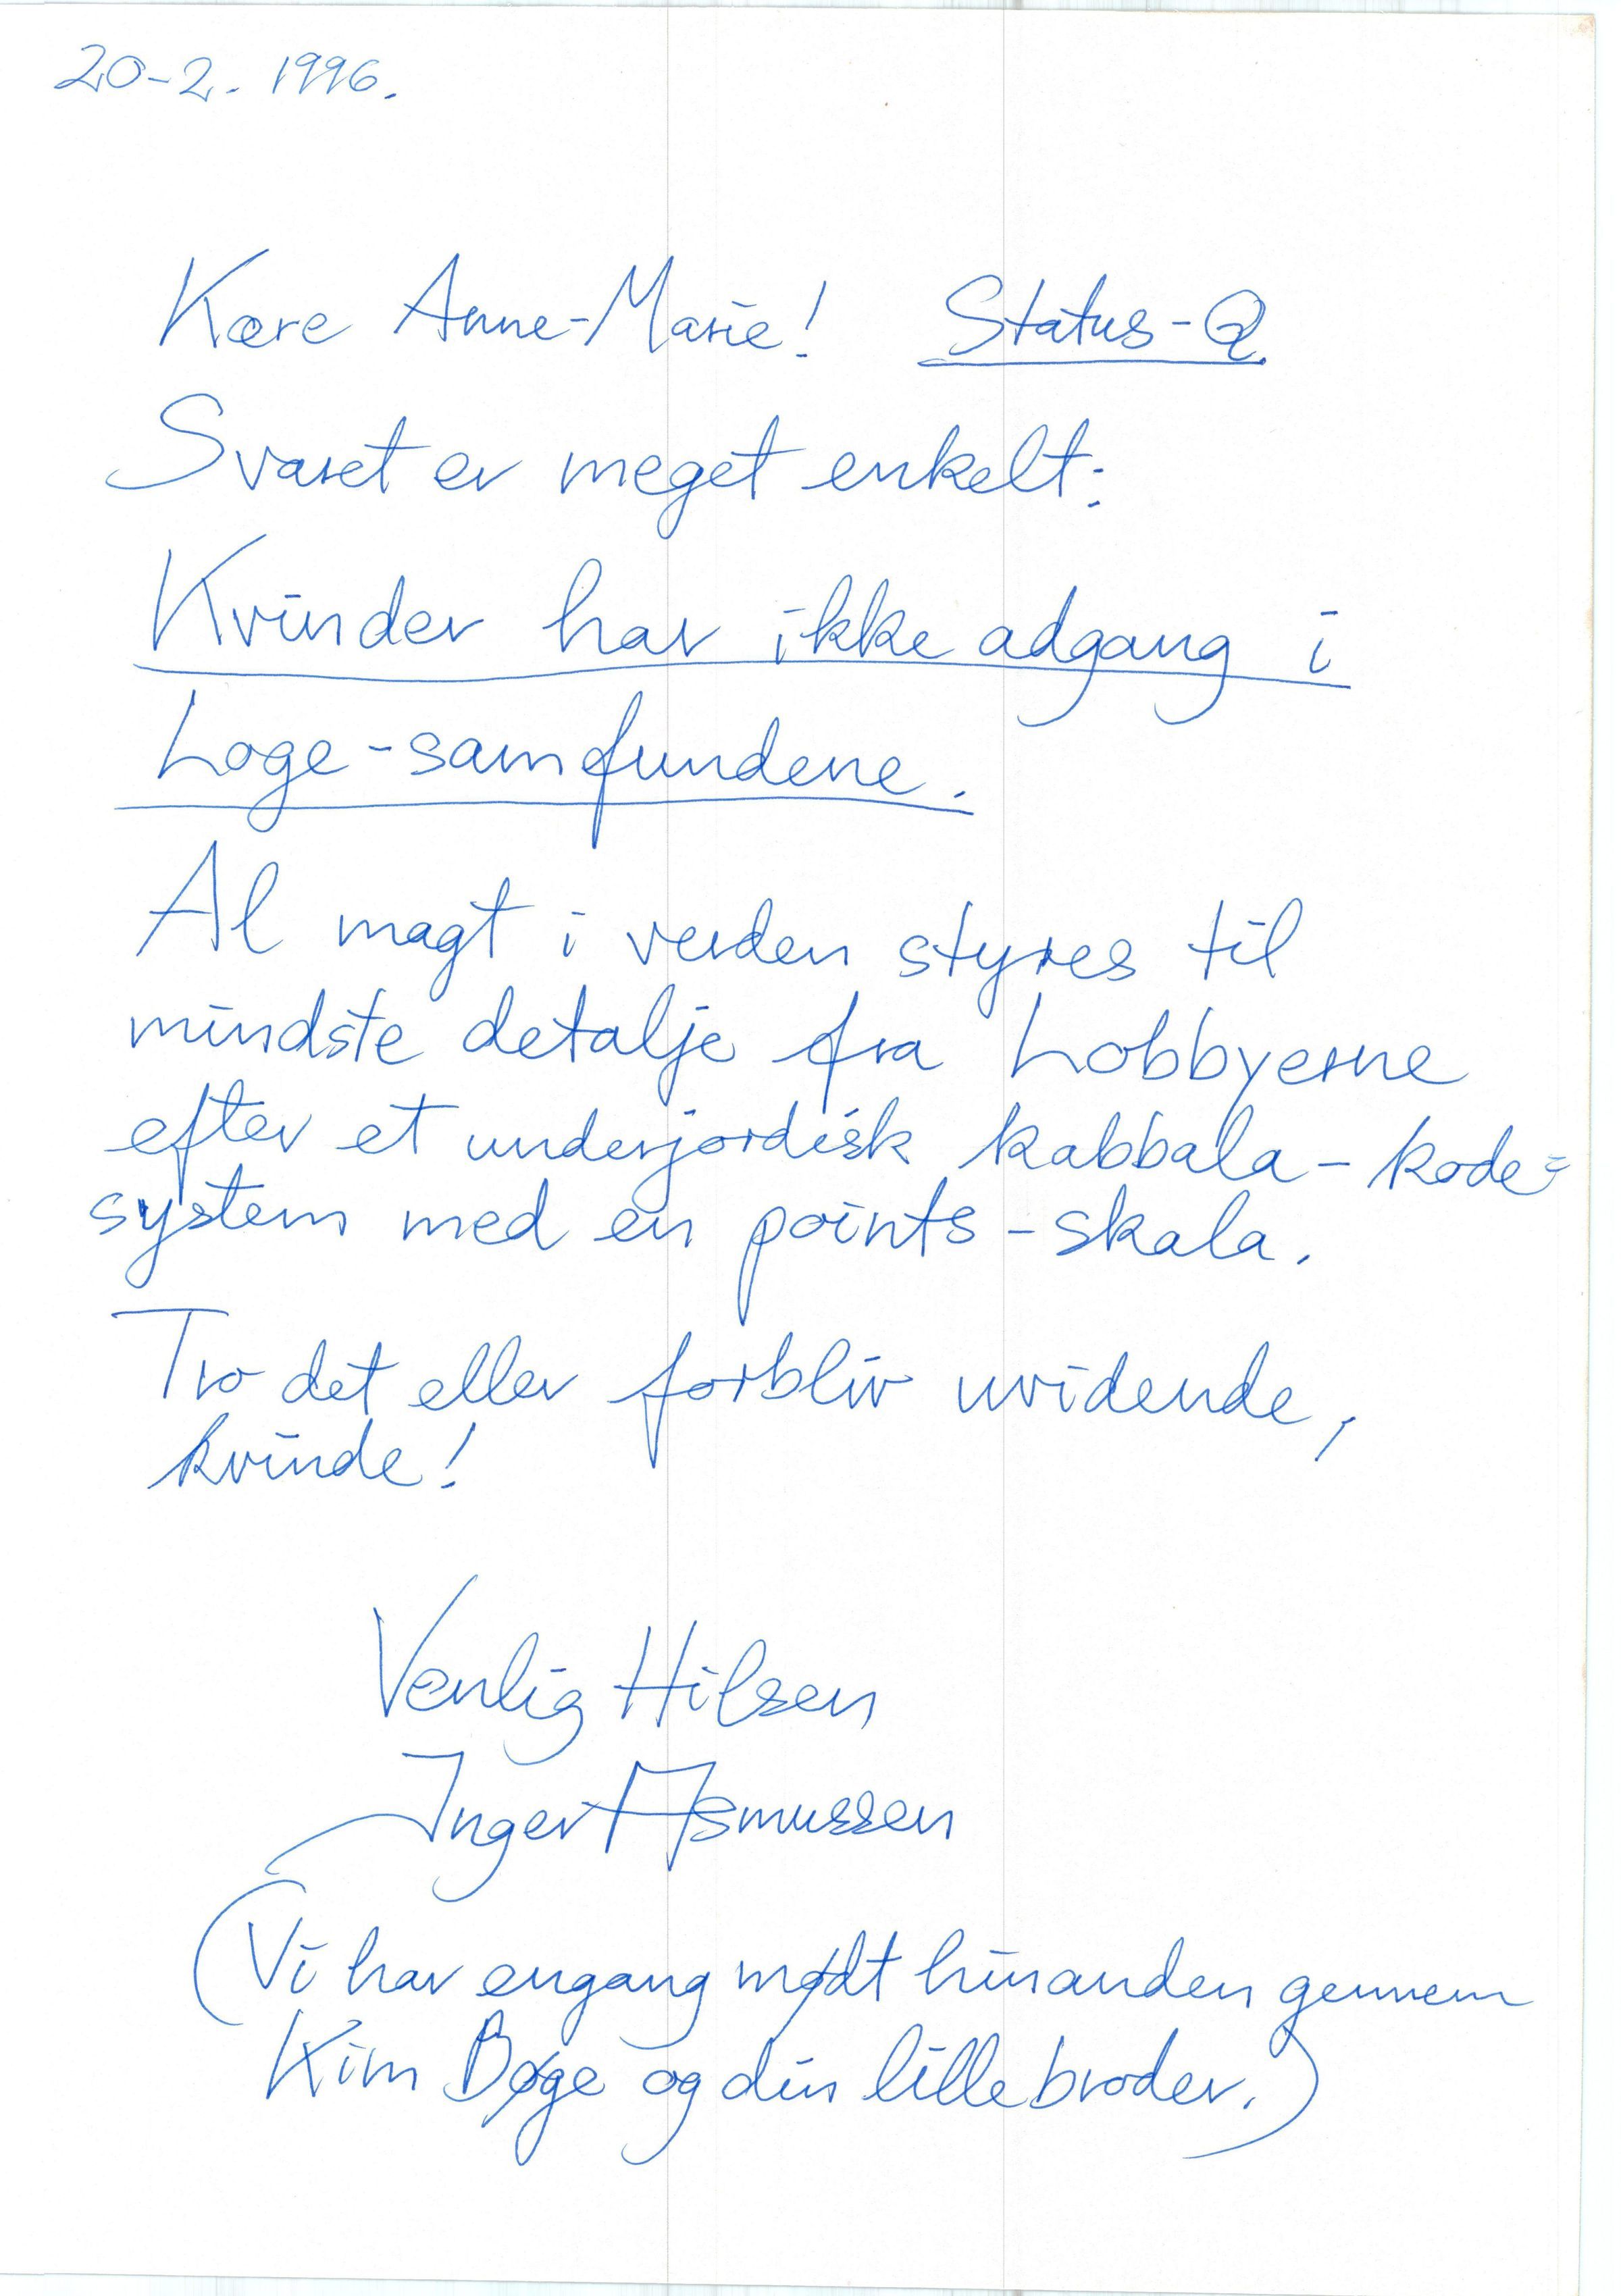 20-2. 1996.
Kære Anne-Marie! Status-Q
Svaret er meget enkelt:
Kvinder har ikke adgang i
Loge-samfundene.
Al magt i verden styres til
mindste detalje fra Lobbyerne
efter et underjordisk kabbala-kode=
system med en points-skala.
Tro det eller forbliv uvidende,
kvinde!
Venlig Hilsen
Inger Asmussen
(Vi har engang mødt hinanden gennem
Kim Bøge og din lillebroder.)